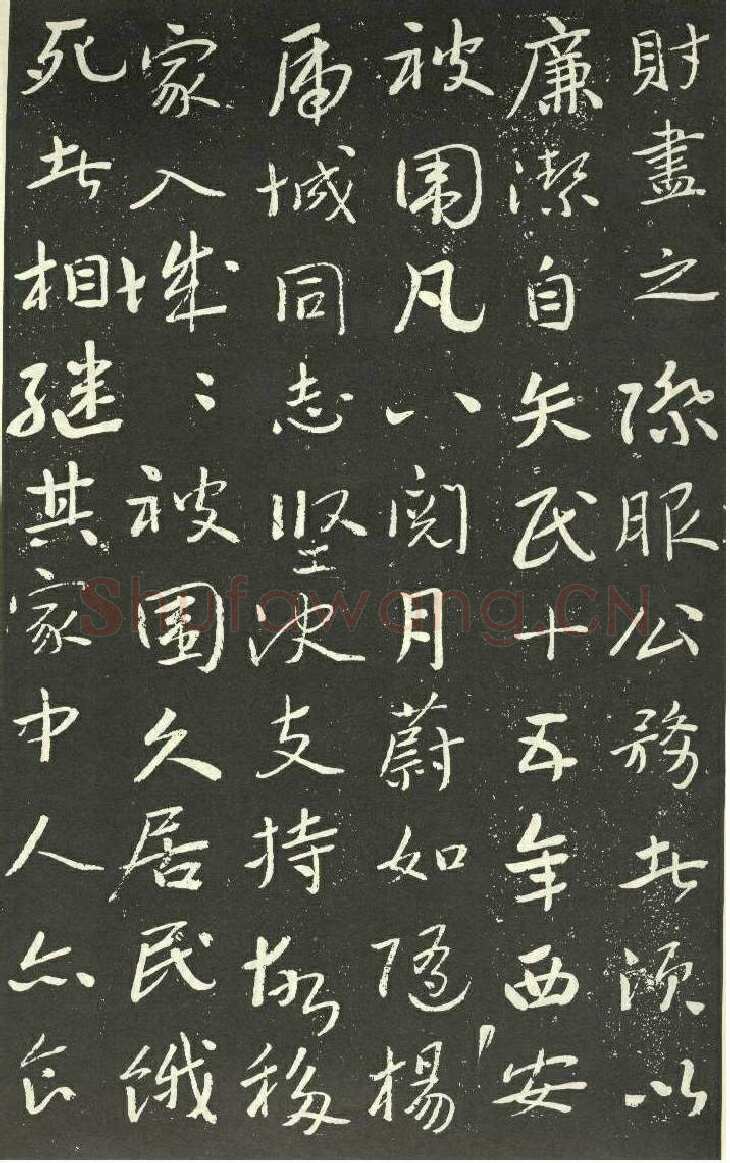 財盡之際服公務者須以
廉潔自矢民十五年西安
被围凡八閱月蔚如随楊
虎城同志坚决支持故移
家入城〻被圍久居民餓
死者相継其家中人亦食
Shufawang.CN